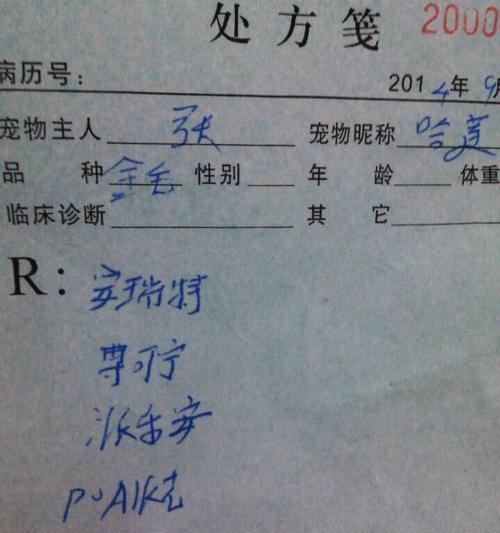 处方笺 2000
病历号: 2014年9月
宠物主人 张 宠物昵称 哈
品 种 金毛 性别 年 龄 体重
临床诊断 其 它
R: 安瑞特
普可宁
派乐安